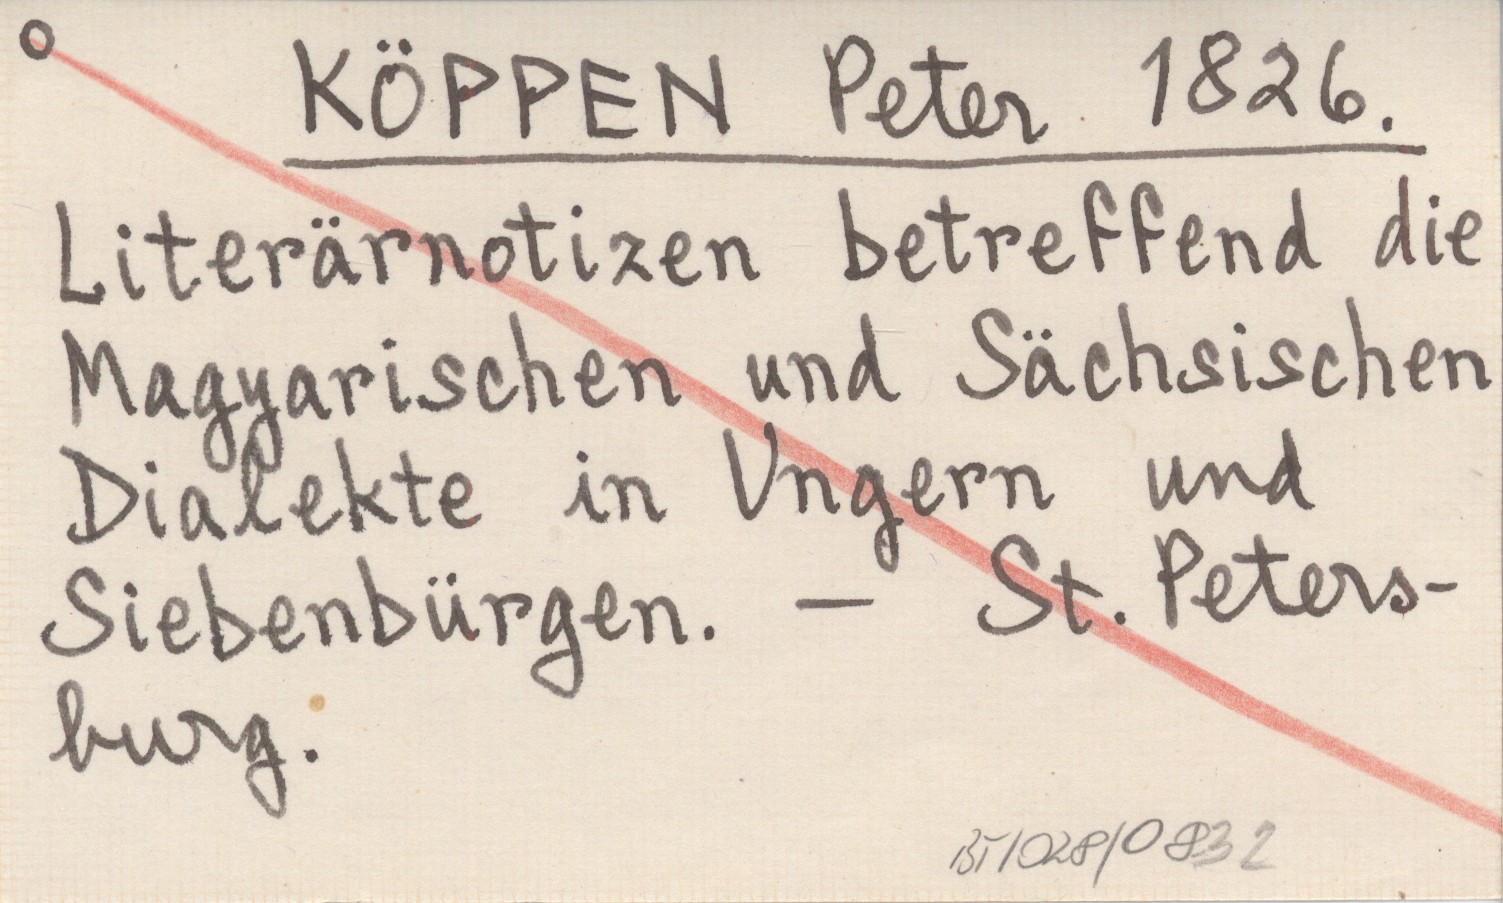 KÖPPEN Peter 1826.
Literärnotizen betreffend die
Magyarischen und Sächsischen
Dialekte in Ungern und
Siebenbürgen. — St. Peters-
burg.
BT/028/0832